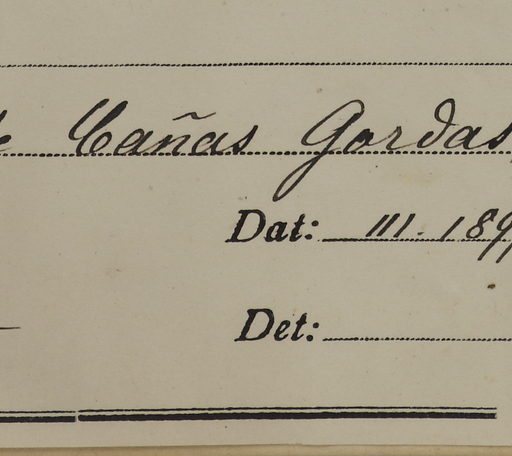 Cañas Gordas,
Dat: III. 189
Det: